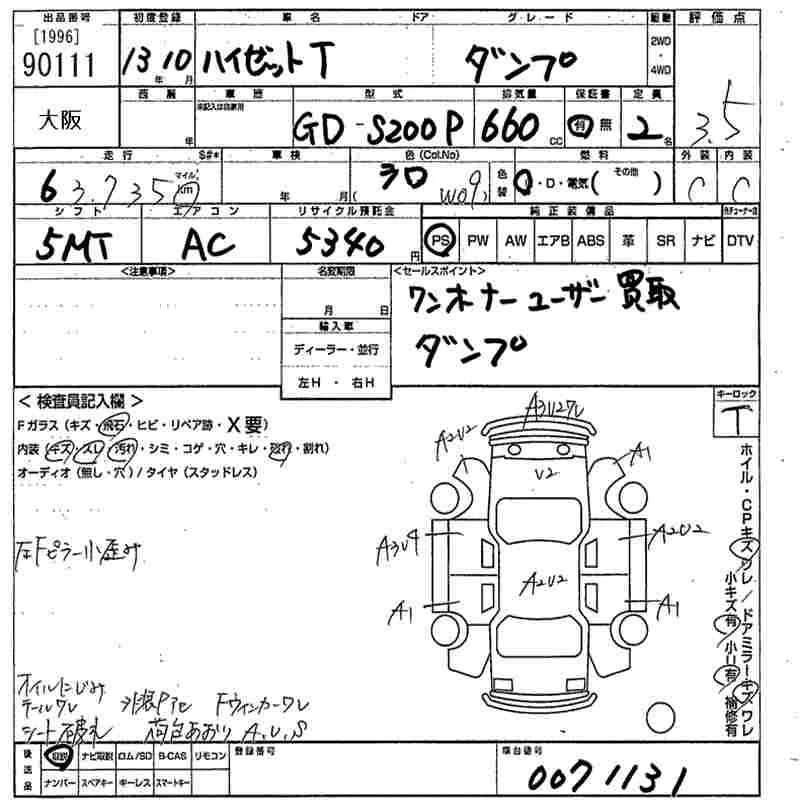 出品番号 初度登録 車名 ドア グレード 駆動 評価点
[1996]
90111 13年 10月 ハイゼットT ダンプ 2WD・4WD 3.5
大阪 西暦 年 車歴 未記入は自家用 型式 排気量 保証書 定員
GD-S200P 660cc 有 無 2名
走行 S#* 車検 色(Col.No) 色替 燃料 外装 内装
63,735 マイル km 年 月 ( シロ W09 ) ・D・電気( その他 ) C C
シフト エアコン リサイクル預託金 純正装備品
5MT AC 5340円 PS PW AW エアB ABS 革 SR ナビ DTV
<注意事項> 名変期限 <セールスポイント>
月 日 ワンオーナーユーザー買取
輸入車 ダンプ
ディーラー・並行
左H・右H
<検査員記入欄> キーロック
Fガラス(キズ・飛石・ヒビ・リペア跡・X要) T
内装(キズ・スレ・汚れ・シミ・コゲ・穴・キレ・残有・割れ)
オーディオ(無し・穴)/タイヤ(スタッドレス)
A3U2ワレ
A2U2 U2 A1
A3U4 A2U2
A2U2
A1 A1
ホイル・CPキズワレ/ドアミラーキズワレ
小キズ有 小U有 補修有
左Fピラー小歪み
オイルにじみ
テールワレ Fウィンカーワレ
シート破れ 荷台あおりA,U,S
後送品 取説 ナビ取説 ロム/SD B-CAS リモコン 登録番号 車台番号
ナンバー スペアキー キーレス スマートキー 0071131